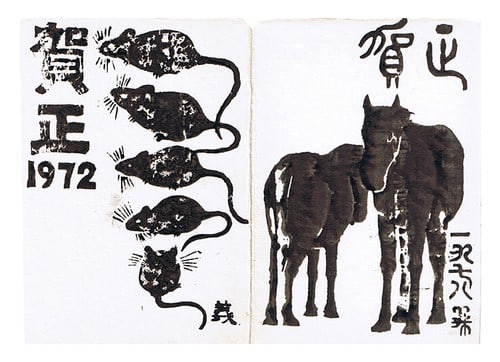 賀正
1972
賀正
一九七八